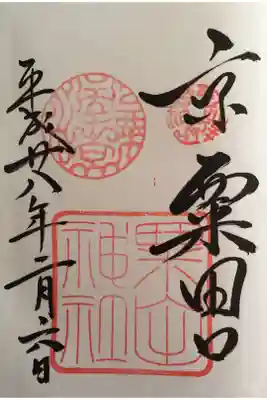 京
粟田口
粟田神社
平成廿八年二月六日